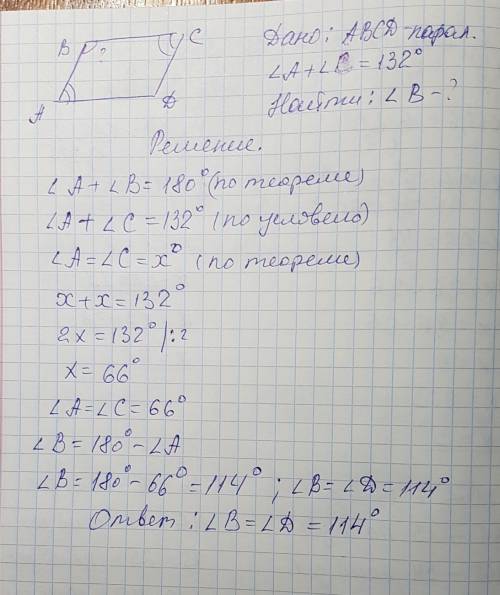 B ? C
A D
Дано: ABCD-парал.
∠A+∠C=132°
Найти: ∠B-?
Решение.
∠A+∠B=180° (по теореме)
∠A+∠C=132° (по условию)
∠A=∠C=x° (по теореме)
x+x=132°
2x=132° |:2
x=66°
∠A=∠C=66°
∠B=180°-∠A
∠B=180°-66°=114°; ∠B=∠D=114°
Ответ: ∠B=∠D=114°